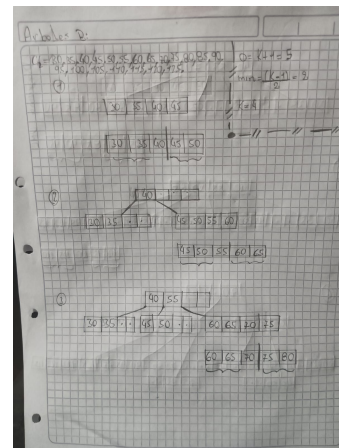 Arboles B:
30, 35, 40, 45, 50, 55, 60, 65, 70, 75, 80, 85, 90
95, 100, 105, 110, 115, 120, 125.
K+1 = 5
min = (K-1)/2 = 2
K=4
①
30 35 40 45
30 35 40 45 50
②
40 · · ·
30 35 · · 45 50 55 60
45 50 55 60 65
③
40 55
30 35 · · 45 50 · · 60 65 70 75
60 65 70 75 80